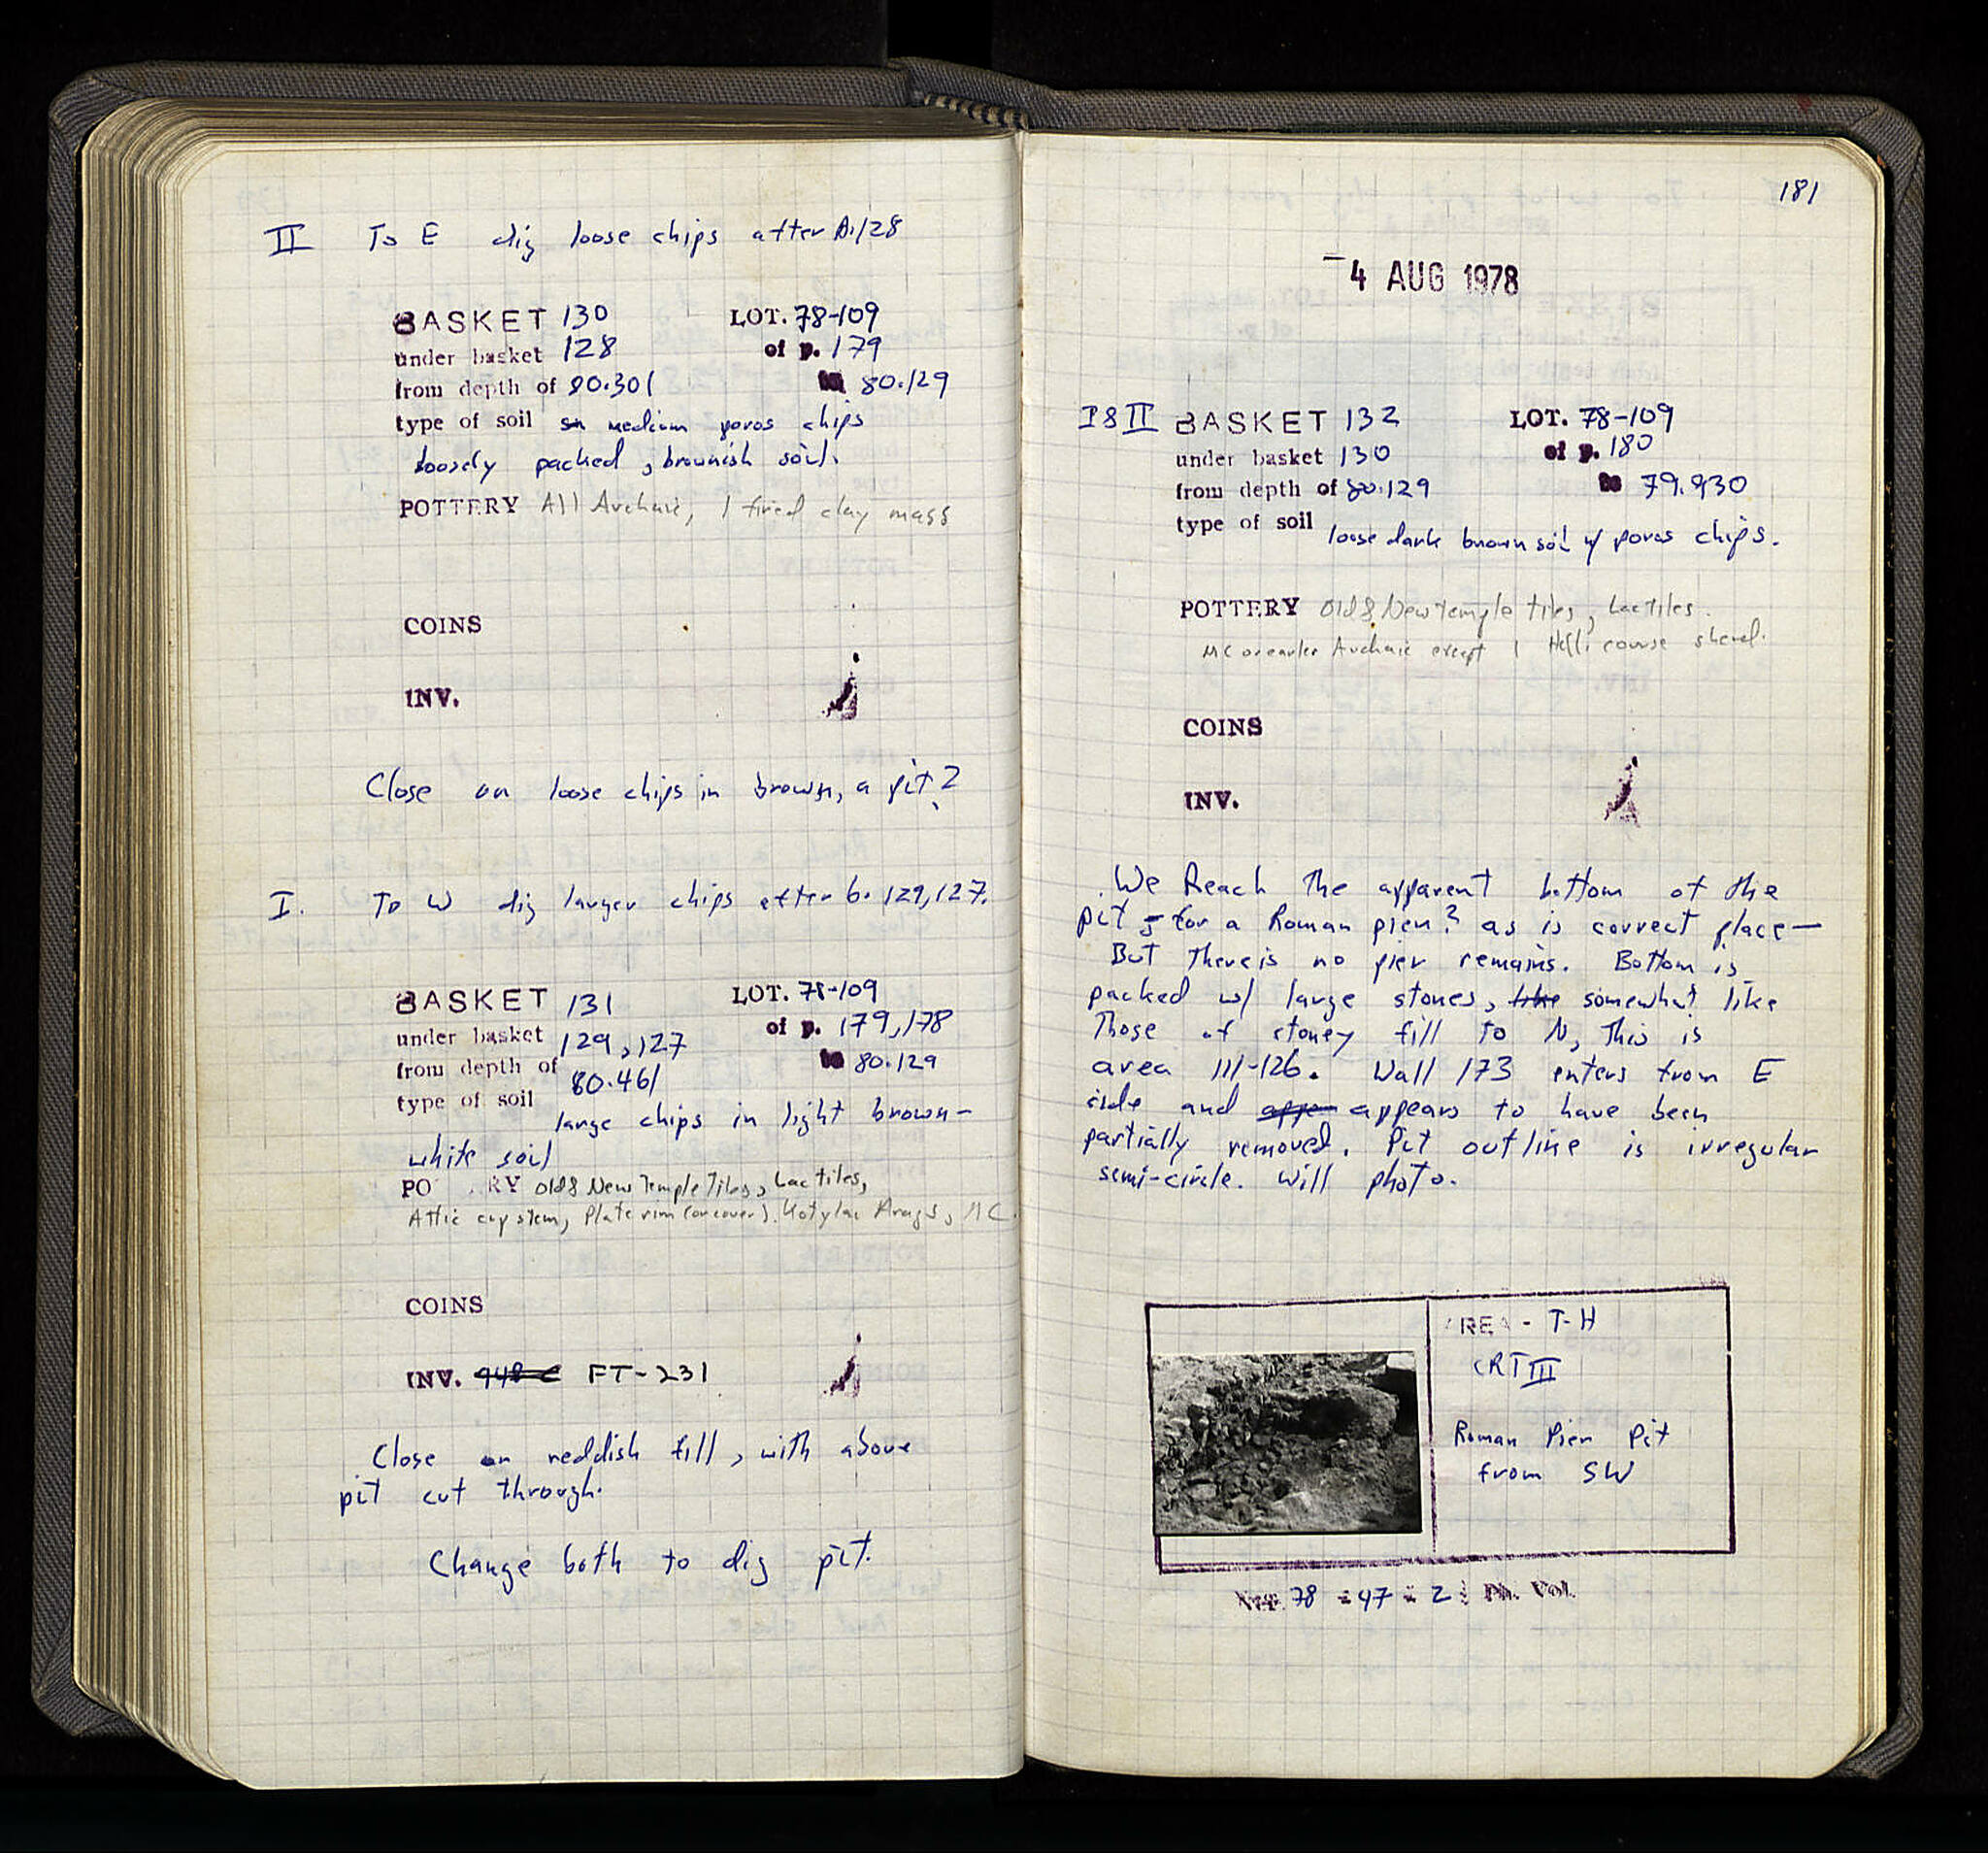 II To E dig loose chips after B.128
BASKET 130 LOT. 78-109
under basket 128 of p. 179
from depth of 80.301 to 80.129
type of soil sn medium poros chips
loosely packed, brownish soil.
POTTERY All Archaic, 1 fired clay mass
COINS
INV.
Close on loose chips in brown, a pit?
I. To W dig larger chips after b. 129, 127.
BASKET 131 LOT. 78-109
under basket 129, 127 of p. 179, 178
from depth of 80.461 to 80.129
type of soil large chips in light brown-
white soil
PO RY Old & New Temple Tiles, Lac tiles,
Attic cup stem, Plate rim (or cover). Kotylai Frags, MC.
COINS
INV. FT-231
Close on reddish fill, with above
pit cut through.
Change both to dig pit.
181
-4 AUG 1978
I & II BASKET 132 LOT. 78-109
under basket 130 of p. 180
from depth of 80.129 to 79.930
type of soil loose dark brown soil w/ poros chips.
POTTERY Old & New temple tiles, Lac tiles.
MC or earlier Archaic except 1 Hell. coarse sherd.
COINS
INV.
We Reach the apparent bottom of the
pit - for a Roman pier? as is correct place-
But there is no pier remains. Bottom is
packed w/ large stones, like somewhat like
Those of stoney fill to N, this is
area 111-126. Wall 173 enters from E
side and appe appears to have been
partially removed. Pit outline is irregular
semi-circle. Will photo.
AREA - T-H
CRT III
Roman Pier Pit
from SW
Neg. 78 - 47 - 2 : Ph. Vol.